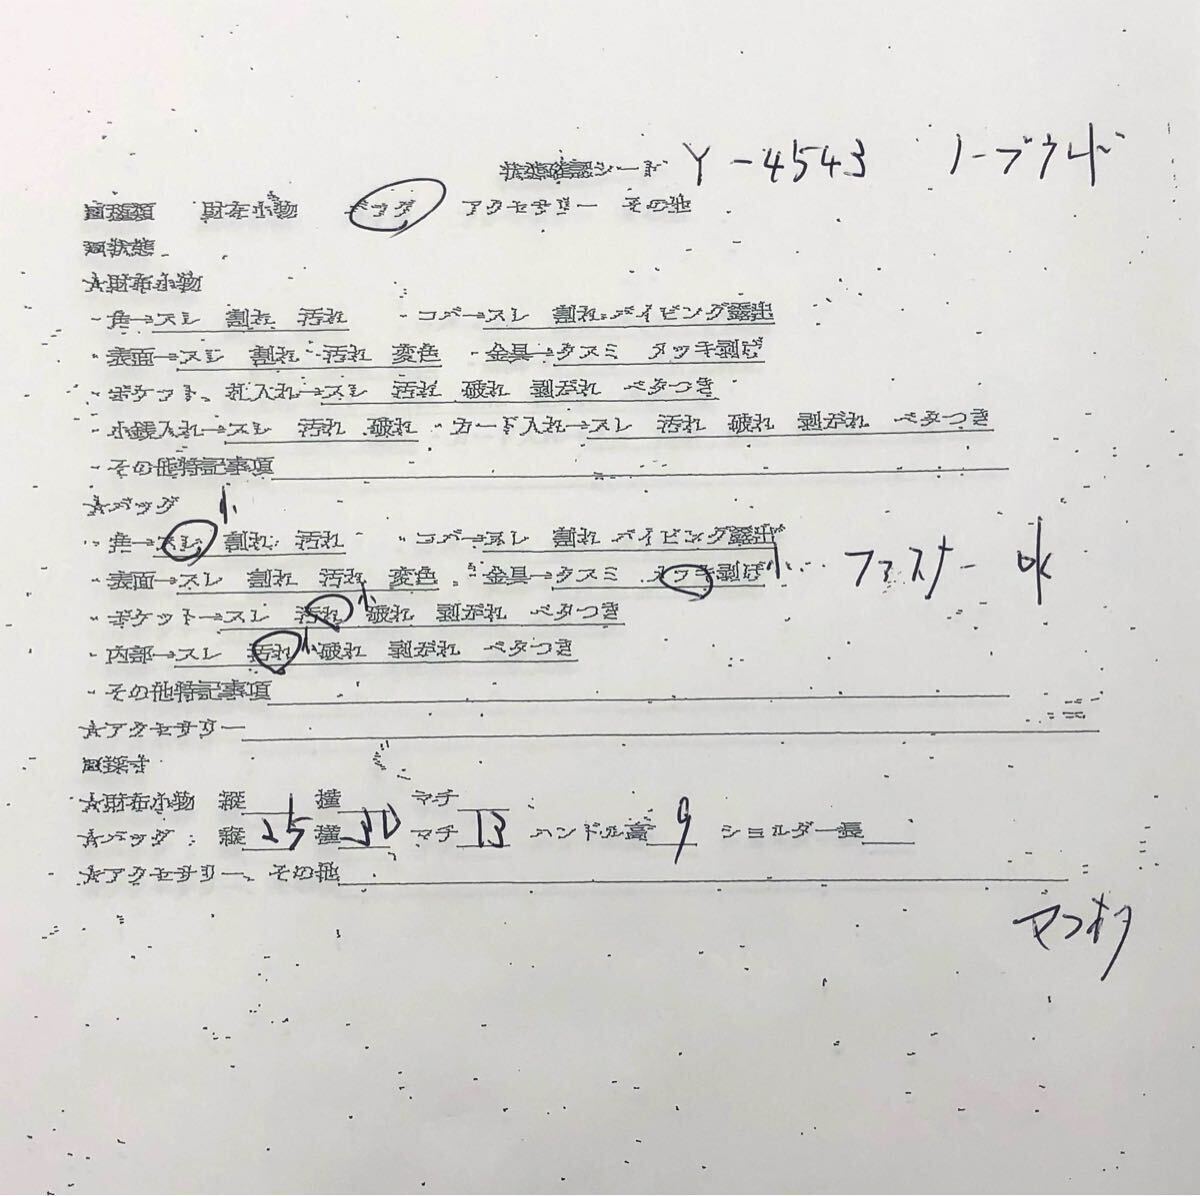 状態確認シート Y-4543 ノーブランド
■種類 財布小物 バッグ アクセサリー その他
■状態
★財布小物
・角→スレ 割れ 汚れ ・コバ→スレ 割れ パイピング露出
・表面→スレ 割れ 汚れ 変色 ・金具→クスミ メッキ剥げ
・ポケット、札入れ→スレ 汚れ 破れ 剥がれ ベタつき
・小銭入れ→スレ 汚れ 破れ ・カード入れ→スレ 汚れ 破れ 剥がれ ベタつき
・その他特記事項
★バッグ 小
・角→スレ 割れ 汚れ ・コバ→スレ 割れ パイピング露出
・表面→スレ 割れ 汚れ 変色 ・金具→クスミ メッキ剥げ 小 ファスナー ok
・ポケット→スレ 汚れ 小 破れ 剥がれ ベタつき
・内部→スレ 汚れ 小 破れ 剥がれ ベタつき
・その他特記事項
★アクセサリー
■採寸
★財布小物 縦 横 マチ
★バッグ : 縦 25 横 30 マチ 13 ハンドル高 9 ショルダー長
★アクセサリー、その他